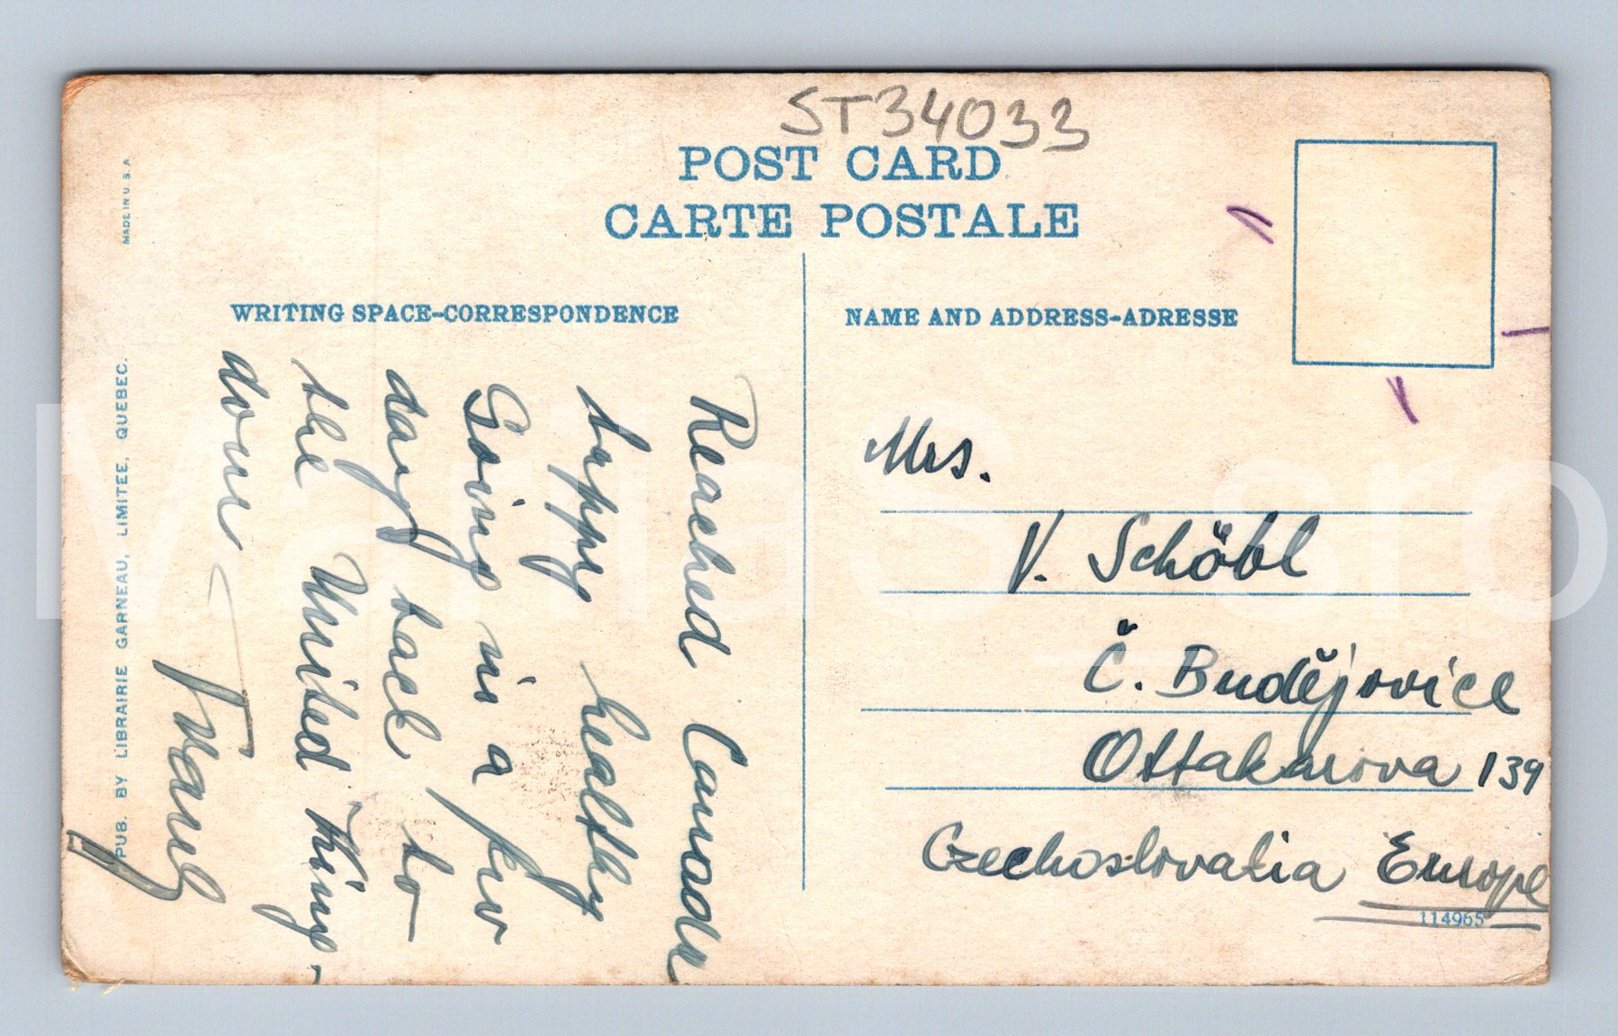 ST34033
POST CARD
CARTE POSTALE
WRITING SPACE-CORRESPONDENCE
NAME AND ADDRESS-ADRESSE
Reached Canada
happy healthy
Going in a few
day back to
the United King-
dom
Frank
Mrs.
V. Schöbl
Č. Budějovice
Ottakarova 139
Czechoslovatia Europe
114965
MADE IN U.S.A.
PUB. BY LIBRAIRIE GARNEAU, LIMITEE, QUEBEC.